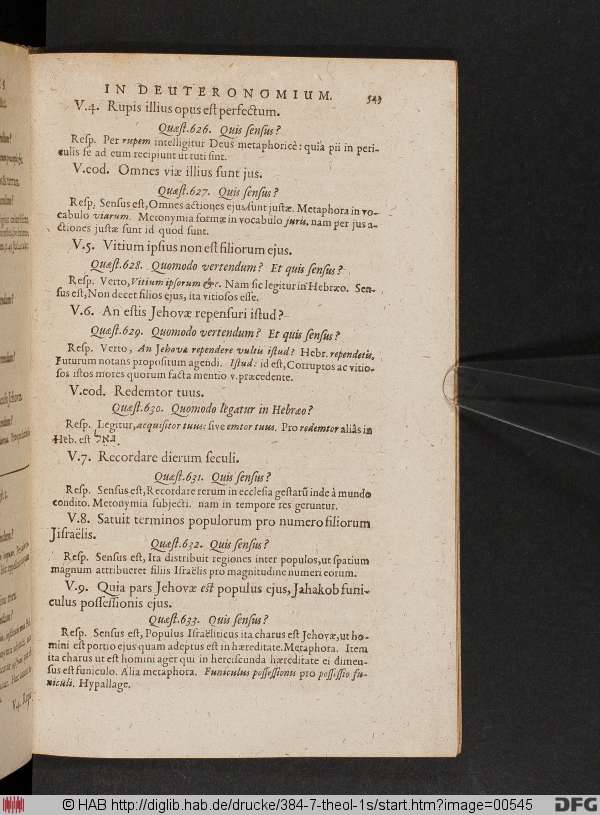 IN DEUTERONOMIUM. 543
V.4. Rupis illius opus est perfectum.
Quæst.626. Quis sensus?
Resp. Per rupem intelligitur Deus metaphoricè: quia pii in peri-
culis se ad eum recipiunt ut tuti sint.
V.eod. Omnes viæ illius sunt jus.
Quæst.627. Quis sensus?
Resp. Sensus est, Omnes actiones ejus sunt justæ. Metaphora in vo-
cabulo viarum. Metonymia formæ in vocabulo juris, nam per jus a-
ctiones justæ sunt id quod sunt.
V.5. Vitium ipsius non est filiorum ejus.
Quæst.628. Quomodo vertendum? Et quis sensus?
Resp. Verto, Vitium ipsorum &c. Nam sic legitur in Hebræo. Sen-
sus est, Non decet filios ejus, ita vitiosos esse.
V.6. An estis Jehovæ repensuri istud?
Quæst.629. Quomodo vertendum? Et quis sensus?
Resp. Verto, An Jehovæ rependere vultu istud? Hebr. rependetis,
Futurum notans propositum agendi. Istud: id est, Corruptos ac vitio-
sos istos mores quorum facta mentio v. præcedente.
V.eod. Redemtor tuus.
Quæst.630. Quomodo legatur in Hebræo?
Resp. Legitur, acquisitor tuus: sive emtor tuus. Pro redemtor aliâs in
Heb. est גאל
V.7. Recordare dierum seculi.
Quæst.631. Quis sensus?
Resp. Sensus est, Recordare rerum in ecclesia gestarũ inde à mundo
condito. Metonymia subjecti. nam in tempore res geruntur.
V.8. Satuit terminos populorum pro numero filiorum
Jisraëlis.
Quæst.632. Quis sensus?
Resp. Sensus est, Ita distribuit regiones inter populos, ut spatium
magnum attribueret filiis Israëlis pro magnitudine numeri eorum.
V.9. Quia pars Jehovæ est populus ejus, Jahakob funi-
culus possessionis ejus.
Quæst.633. Quis sensus?
Resp. Sensus est, Populus Israëliticus ita charus est Jehovæ, ut ho-
mini est portio ejus quam adeptus est in hæreditate. Metaphora. Item
ita charus ut est homini ager qui in herciscunda hæreditate ei dimen-
sus est funiculo. Alia metaphora. Funiculus possessionis pro possessio fu-
niculi. Hypallage.
V.4. Rupis
© HAB http://diglib.hab.de/drucke/384-7-theol-1s/start.htm?image=00545
DFG